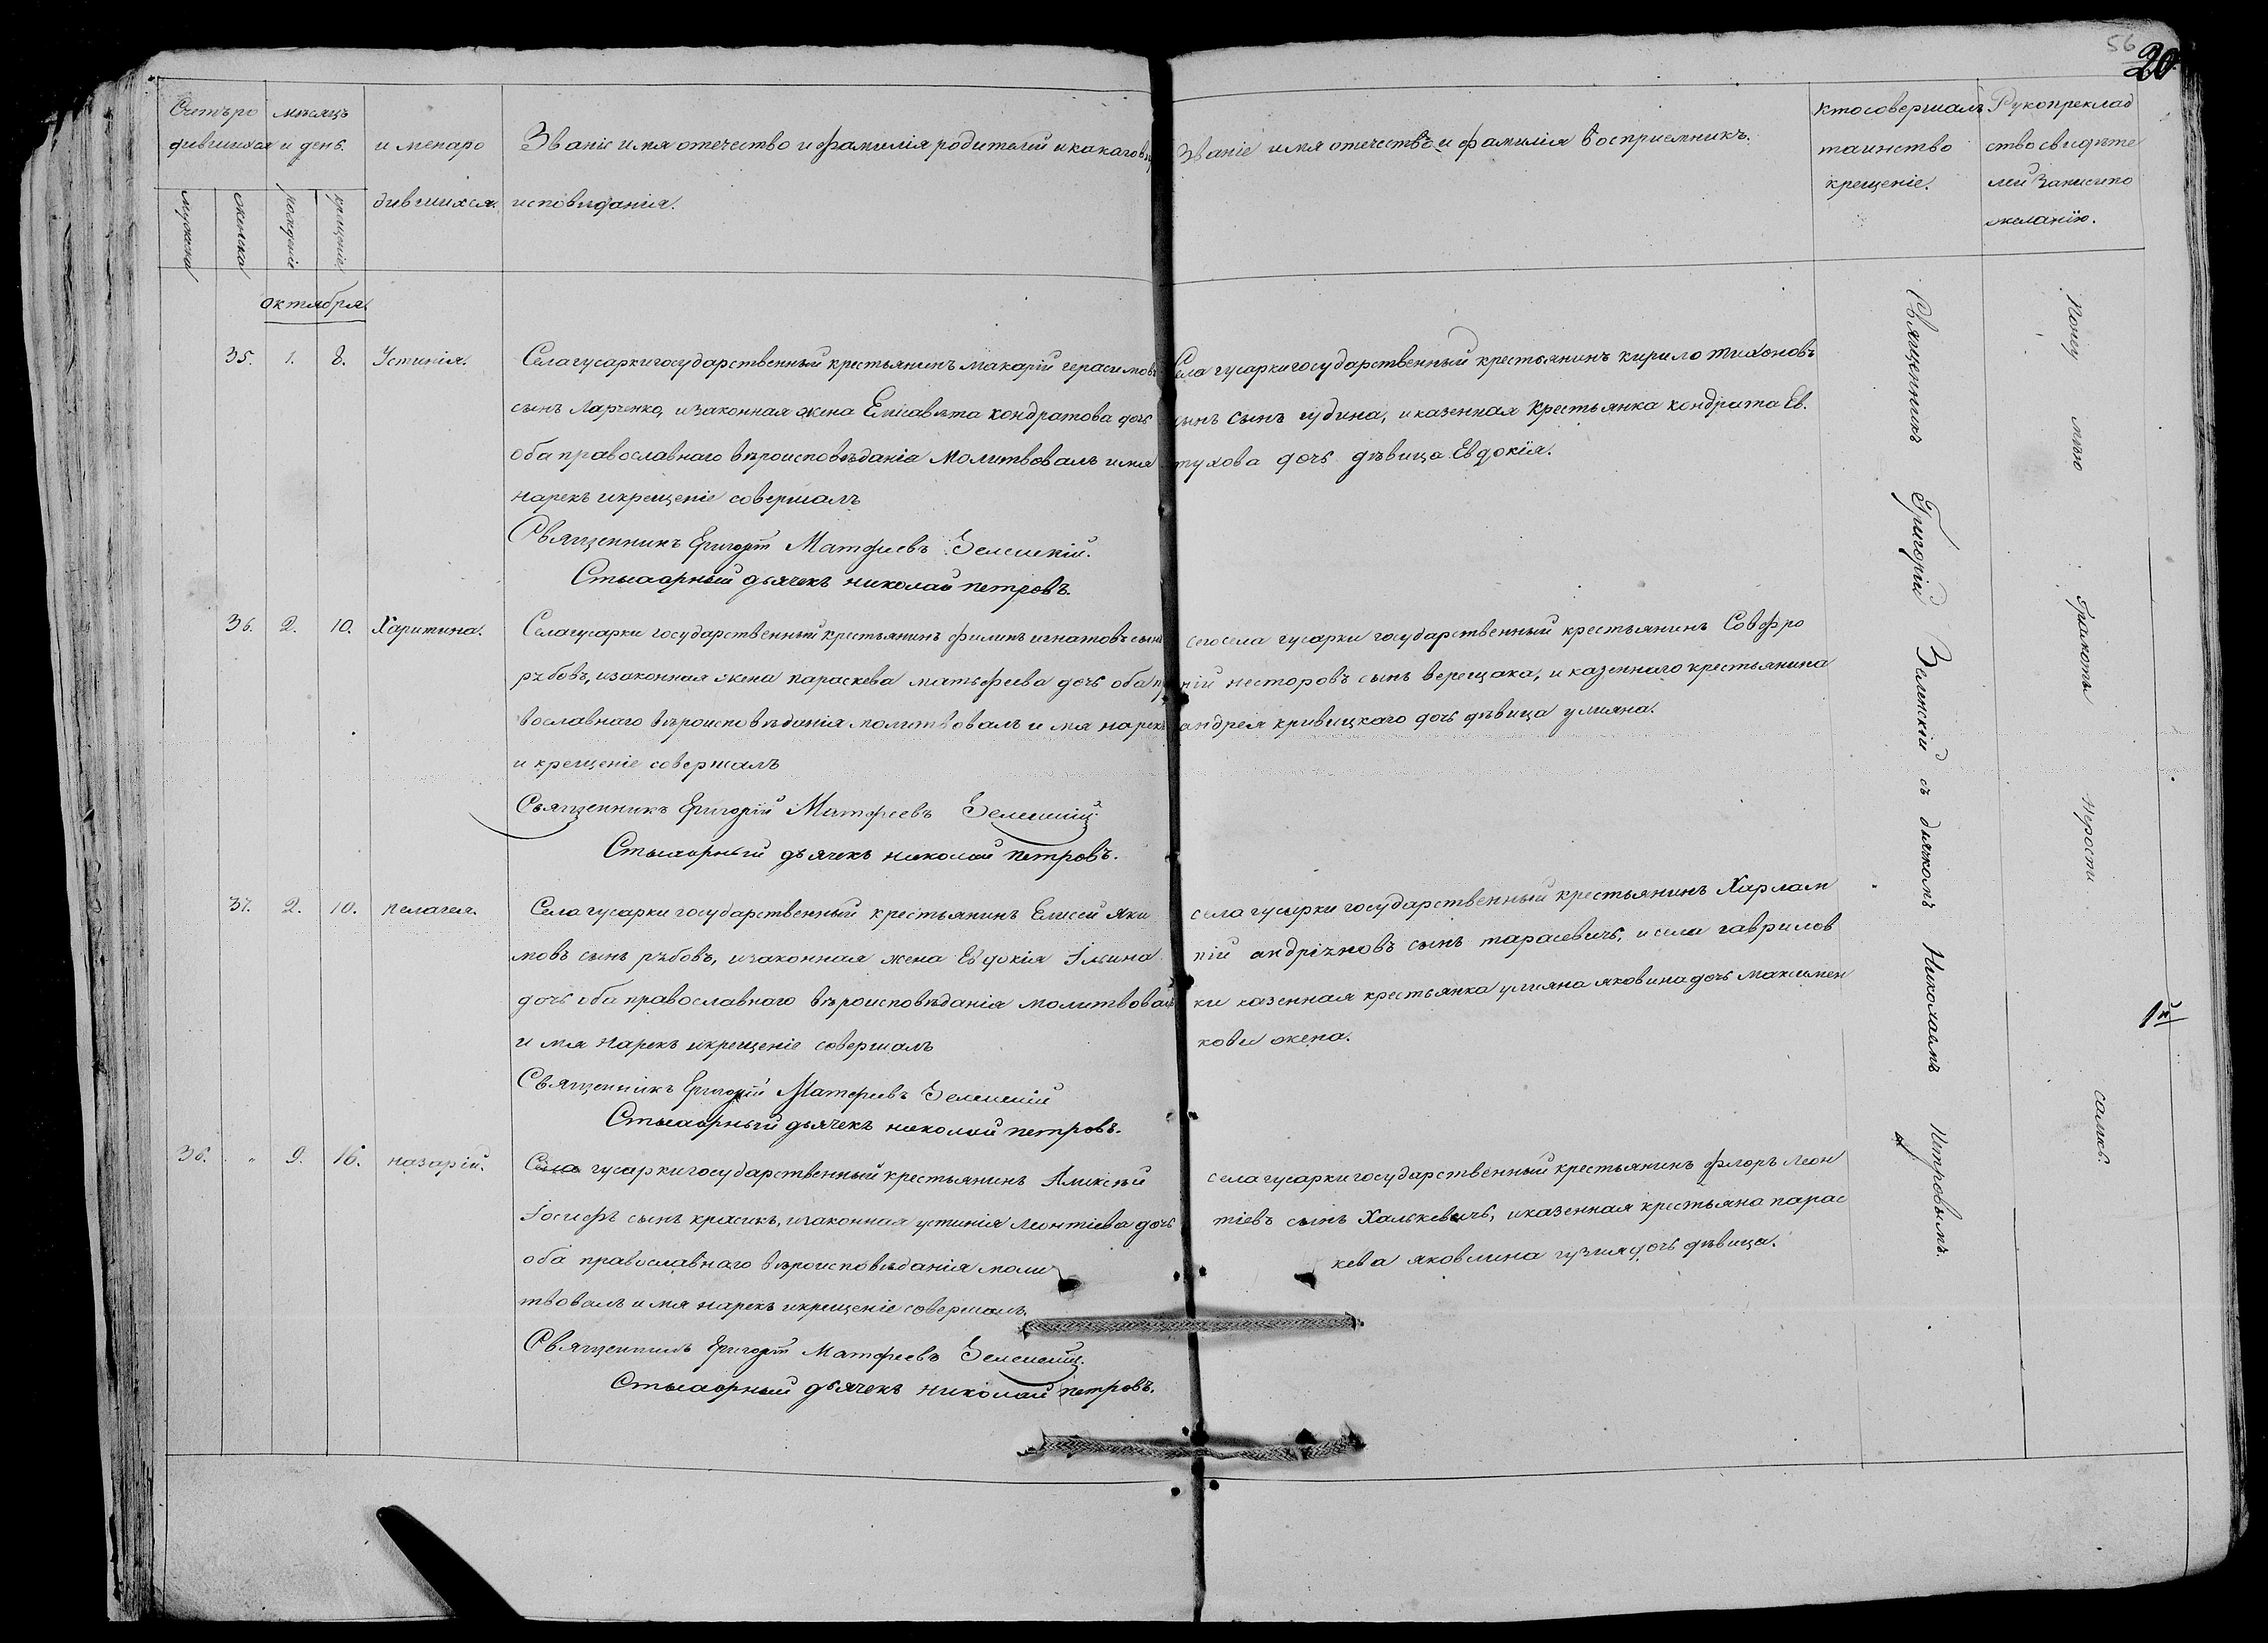 56
20
Счетъ ро
дившихся
мѣсяцъ
и день.
имена ро
дившихся.
Званіе имя отечество и фамилія родителей и какаго вѣ
исповѣданія.
Званіе имя отечество и фамилія воспріемникъ.
Кто совершалъ
таинство
крещеніе.
Рукопреклад
ство свидѣте
лей записи по
желанію.
мужеска
женска
рожденіе
крещеніе
октября.
35. 1. 8. Устинія.
Села гусарки государственный крестьянинъ макарій герасимовъ
сынъ Ларченко, и законная жена Елисавѣта кондратова дочь
оба православнаго вѣроисповѣданія Молитвовалъ имя
нарекъ и крещеніе совершалъ
Священникъ Григорій Матфѣевъ Зеленскій.
Стихарный дьячекъ николай петровъ.
Села гусарки государственный крестьянинъ кирило тихоновъ
сынъ сынъ гудина, и казенная крестьянка кондрата Ев.
тухова дочь дѣвица Евдокія.
36. 2. 10. Харитина.
Села гусарки государственный крестьянинъ филипъ игнатовъ сынъ
рѣбовъ, и законная жена параскева матьфеева дочь оба пр
вославнаго вѣроисповѣданія молитвовалъ имя нарекъ
и крещеніе совершалъ
Священникъ Григорій Матфеевъ Зеленскій
Стихарный дьячекъ николай петровъ.
сего села гусарки государственный крестьянинъ Совфро
ній несторовъ сынъ верещака, и казеннаго крестьянина
андрея кривицкаго дочь дѣвица улияна.
37. 2. 10. пелагея.
Села гусарки государственный крестьянинъ Елисей яки
мовъ сынъ рѣбовъ, и законная жена Евдокія Ільина
дочь оба православнаго вѣроисповѣданія молитвовалъ
имя нарекъ и крещеніе совершалъ
Священникъ Григорій Матфеевъ Зеленскій
Стихарный дьячекъ николай петровъ.
села гусарки государственный крестьянинъ Харлам
пій андріяновъ сынъ тарасевичь, и села гаврилов
ки казенная крестьянка улияна яковина дочь максимен
кова жена.
36. " 9. 16. назарій.
Села гусарки государственный крестьянинъ Аликсѣй
Іосифъ сынъ красикъ, и законная устинія леонтіева дочь
оба православнаго вѣроисповѣданія моли
твовалъ имя нарекъ и крещеніе совершалъ.
Священникъ Григорій Матфеевъ Зеленскій.
Стихарный дьячекъ николай петровъ.
села гусарки государственный крестьянинъ флоръ леон
тіевъ сынъ Халькевичь, и казенная крестьяна парас
кева яковлина дочь дѣвица.
Священникъ Григорій Зеленскій съ дьячкомъ Николаемъ Петровымъ.